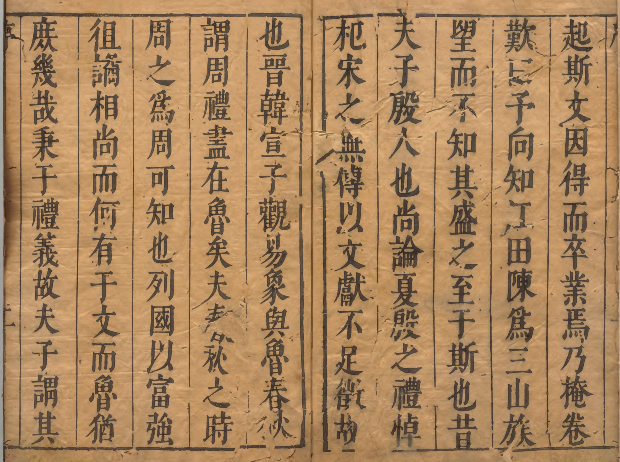 起斯文因得而卒業焉乃掩卷
歎曰予向知江田陳爲三山族
望而不知其盛之至于斯也昔
夫子殷人也尚論夏殷之禮悼
杞宋之無傳以文獻不足徵故
也晉韓宣子觀易象與魯春秋
謂周禮盡在魯矣夫春秋之時
周之爲周可知也列國以富強
徂譎相尚而何有于文而魯猶
庶幾哉秉于禮義故夫子謂其